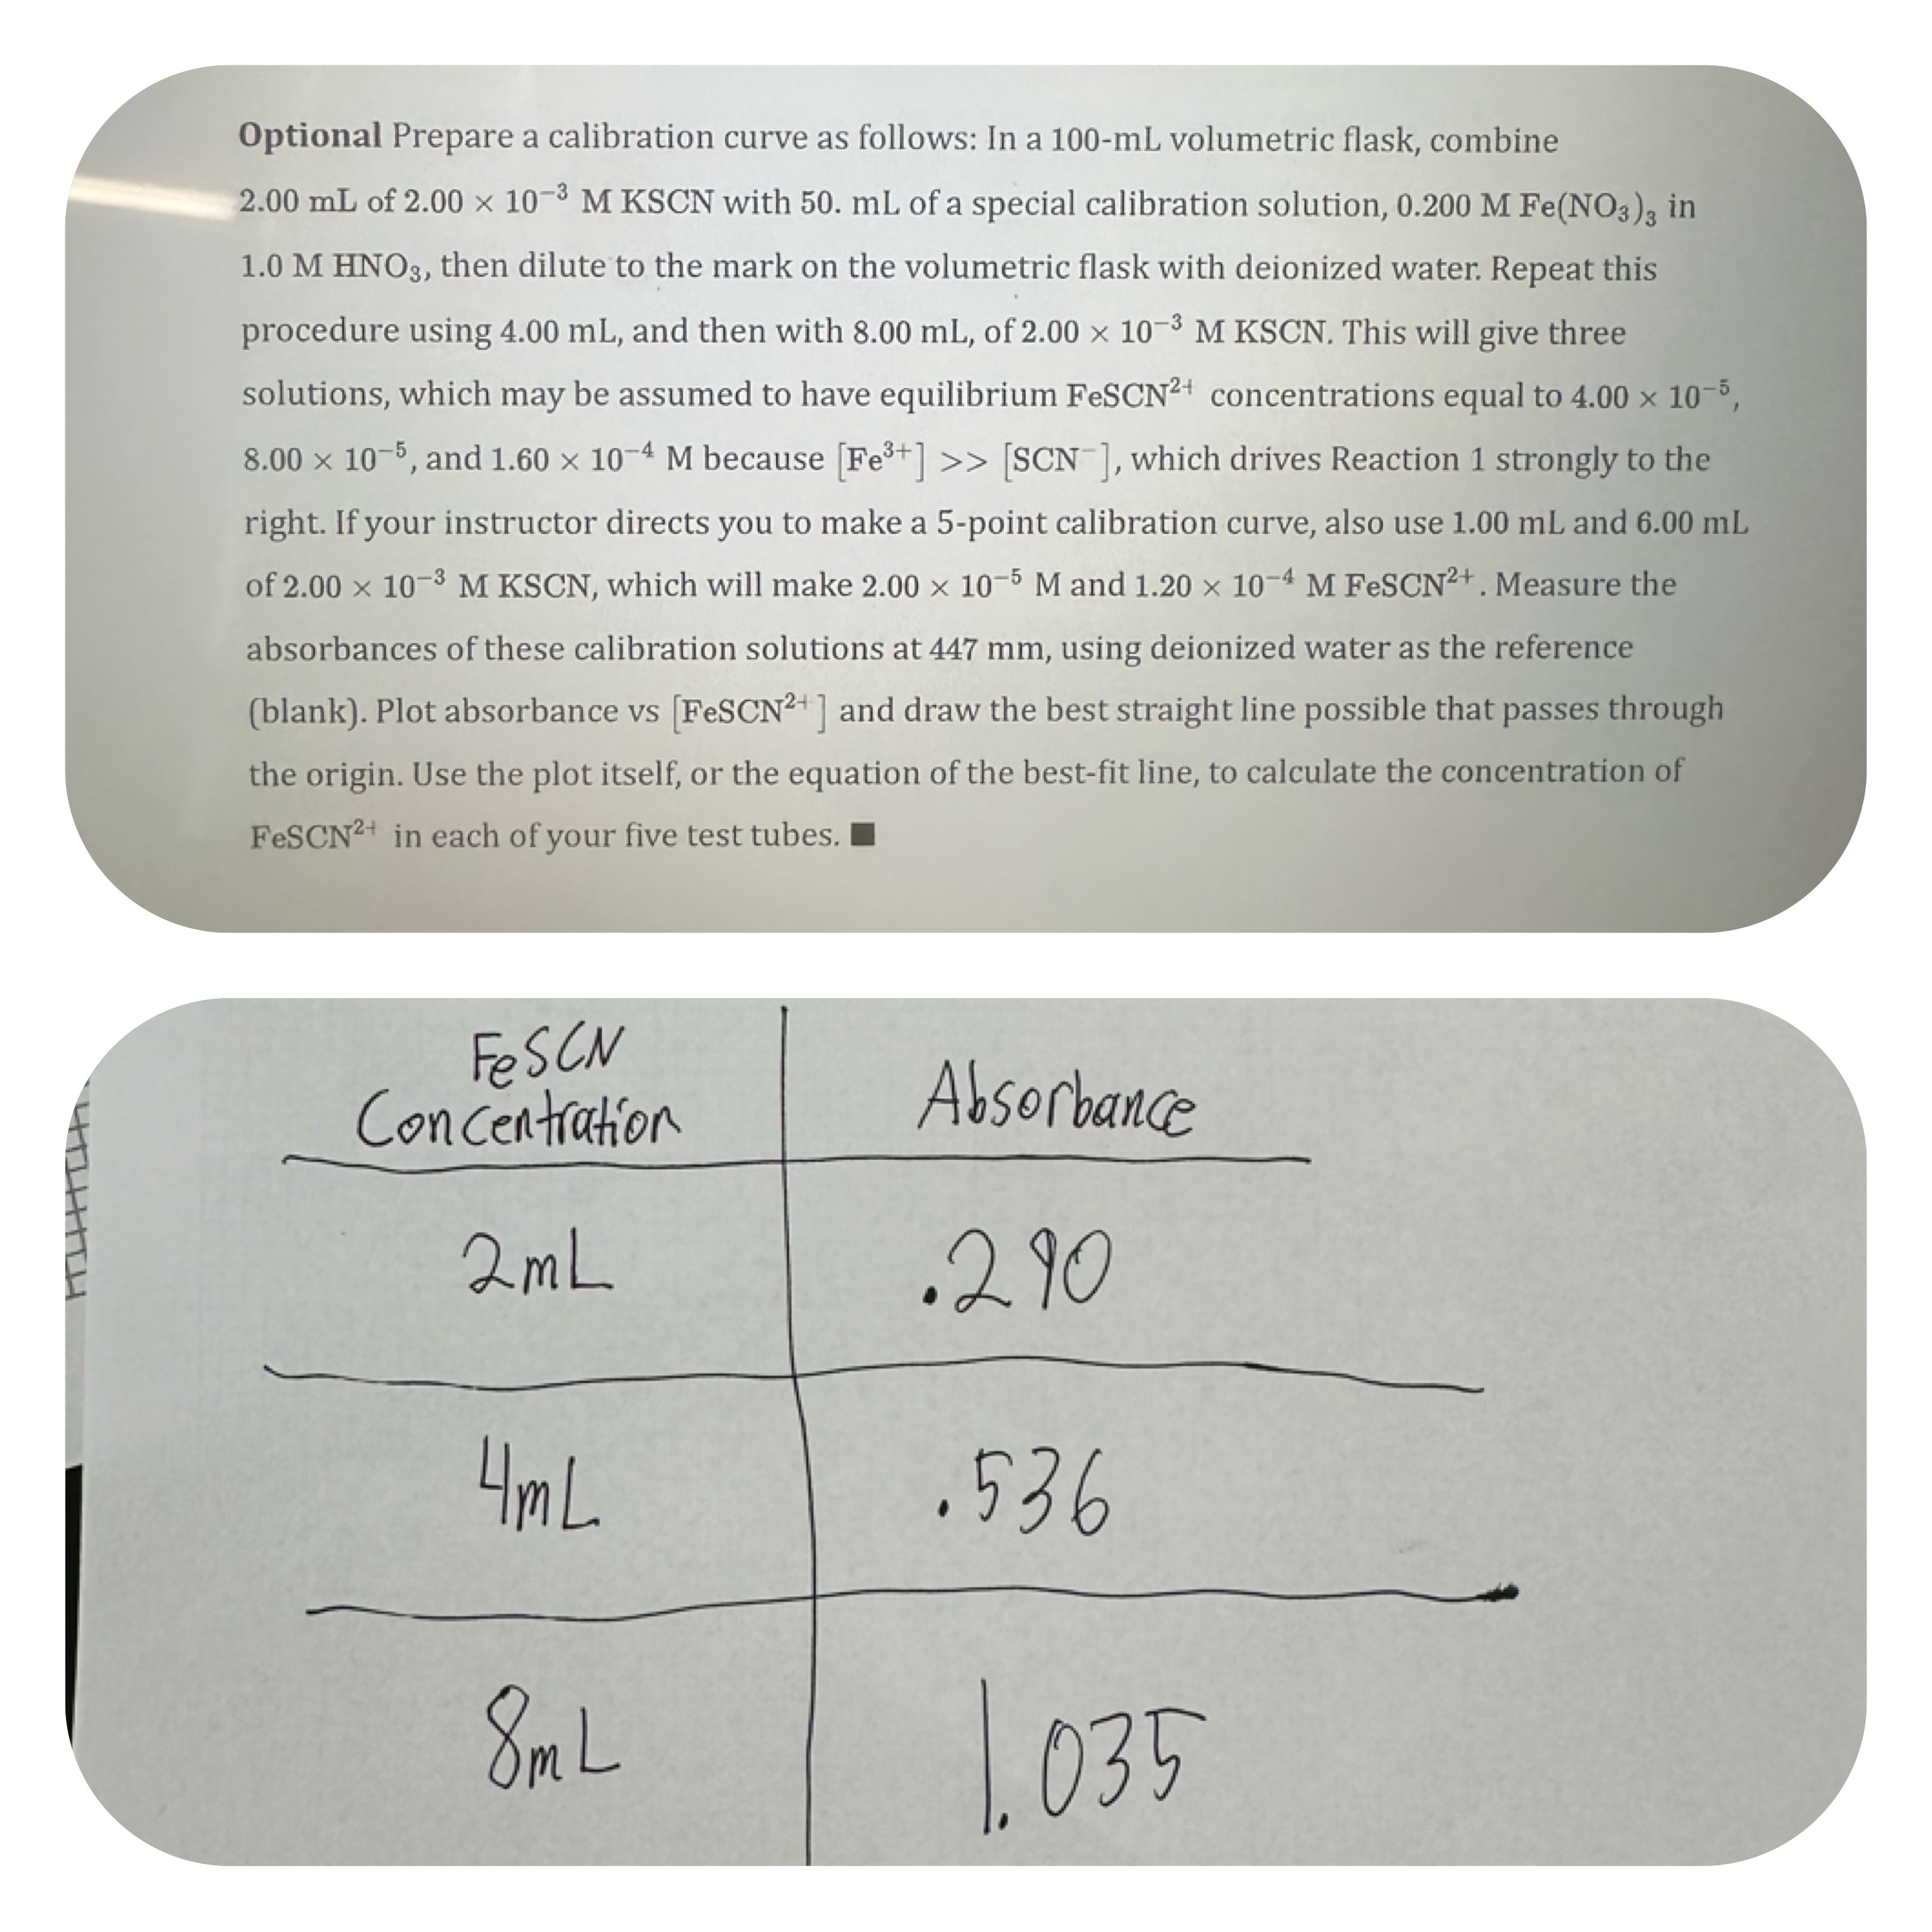 Optional Prepare a calibration curve as follows: In a 100-mL volumetric flask, combine
2.00 mL of 2.00 × 10⁻³ M KSCN with 50. mL of a special calibration solution, 0.200 M Fe(NO₃)₃ in
1.0 M HNO₃, then dilute to the mark on the volumetric flask with deionized water. Repeat this
procedure using 4.00 mL, and then with 8.00 mL, of 2.00 × 10⁻³ M KSCN. This will give three
solutions, which may be assumed to have equilibrium FeSCN²⁺ concentrations equal to 4.00 × 10⁻⁵,
8.00 × 10⁻⁵, and 1.60 × 10⁻⁴ M because [Fe³⁺] >> [SCN⁻], which drives Reaction 1 strongly to the
right. If your instructor directs you to make a 5-point calibration curve, also use 1.00 mL and 6.00 mL
of 2.00 × 10⁻³ M KSCN, which will make 2.00 × 10⁻⁵ M and 1.20 × 10⁻⁴ M FeSCN²⁺. Measure the
absorbances of these calibration solutions at 447 mm, using deionized water as the reference
(blank). Plot absorbance vs [FeSCN²⁺] and draw the best straight line possible that passes through
the origin. Use the plot itself, or the equation of the best-fit line, to calculate the concentration of
FeSCN²⁺ in each of your five test tubes. ■
FeSCN
Concentration
Absorbance
2mL .290
4mL .536
8mL 1.035